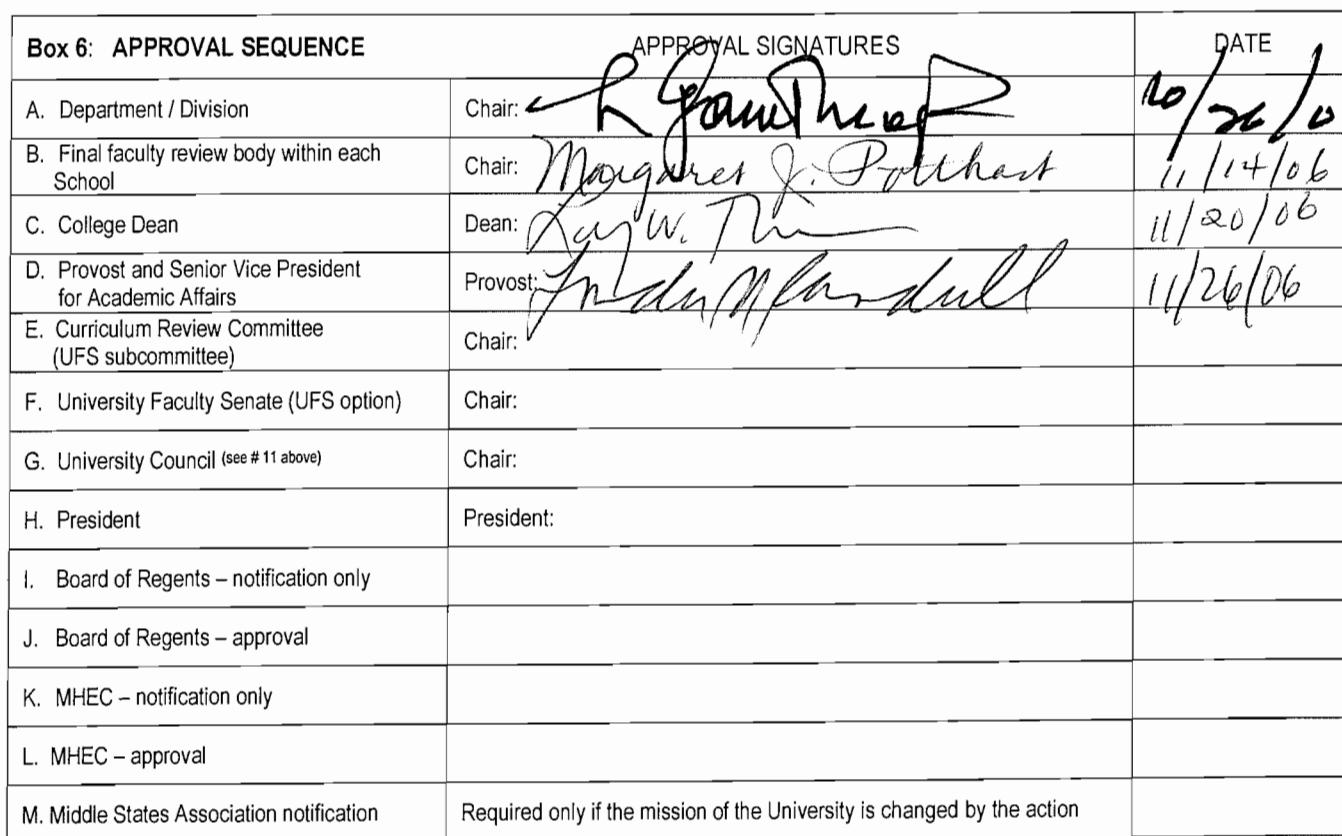 Box 6: APPROVAL SEQUENCE APPROVAL SIGNATURES DATE
A. Department / Division Chair: 10/26/0
B. Final faculty review body within each School Chair: Margaret J. Potthast 11/14/06
C. College Dean Dean: W. 11/20/06
D. Provost and Senior Vice President for Academic Affairs Provost: 11/26/06
E. Curriculum Review Committee (UFS subcommittee) Chair:
F. University Faculty Senate (UFS option) Chair:
G. University Council (see # 11 above) Chair:
H. President President:
I. Board of Regents – notification only
J. Board of Regents – approval
K. MHEC – notification only
L. MHEC – approval
M. Middle States Association notification Required only if the mission of the University is changed by the action